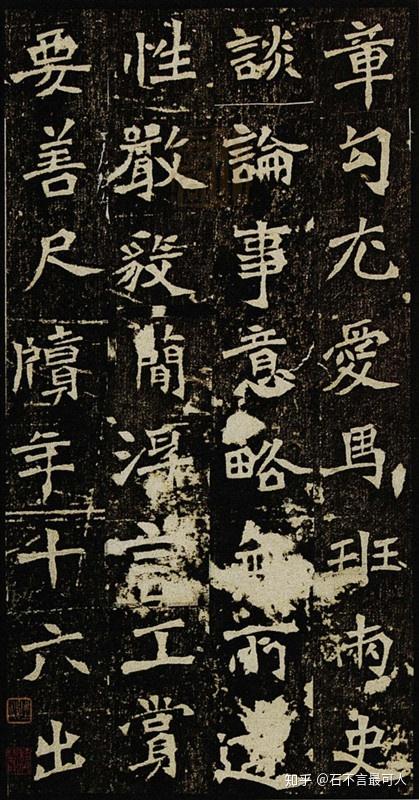 章句尤愛馬班兩史
談論事意略無所遺
性嚴毅簡浮言工賞
要善尺牘年十六出
知乎 @石不言最可人